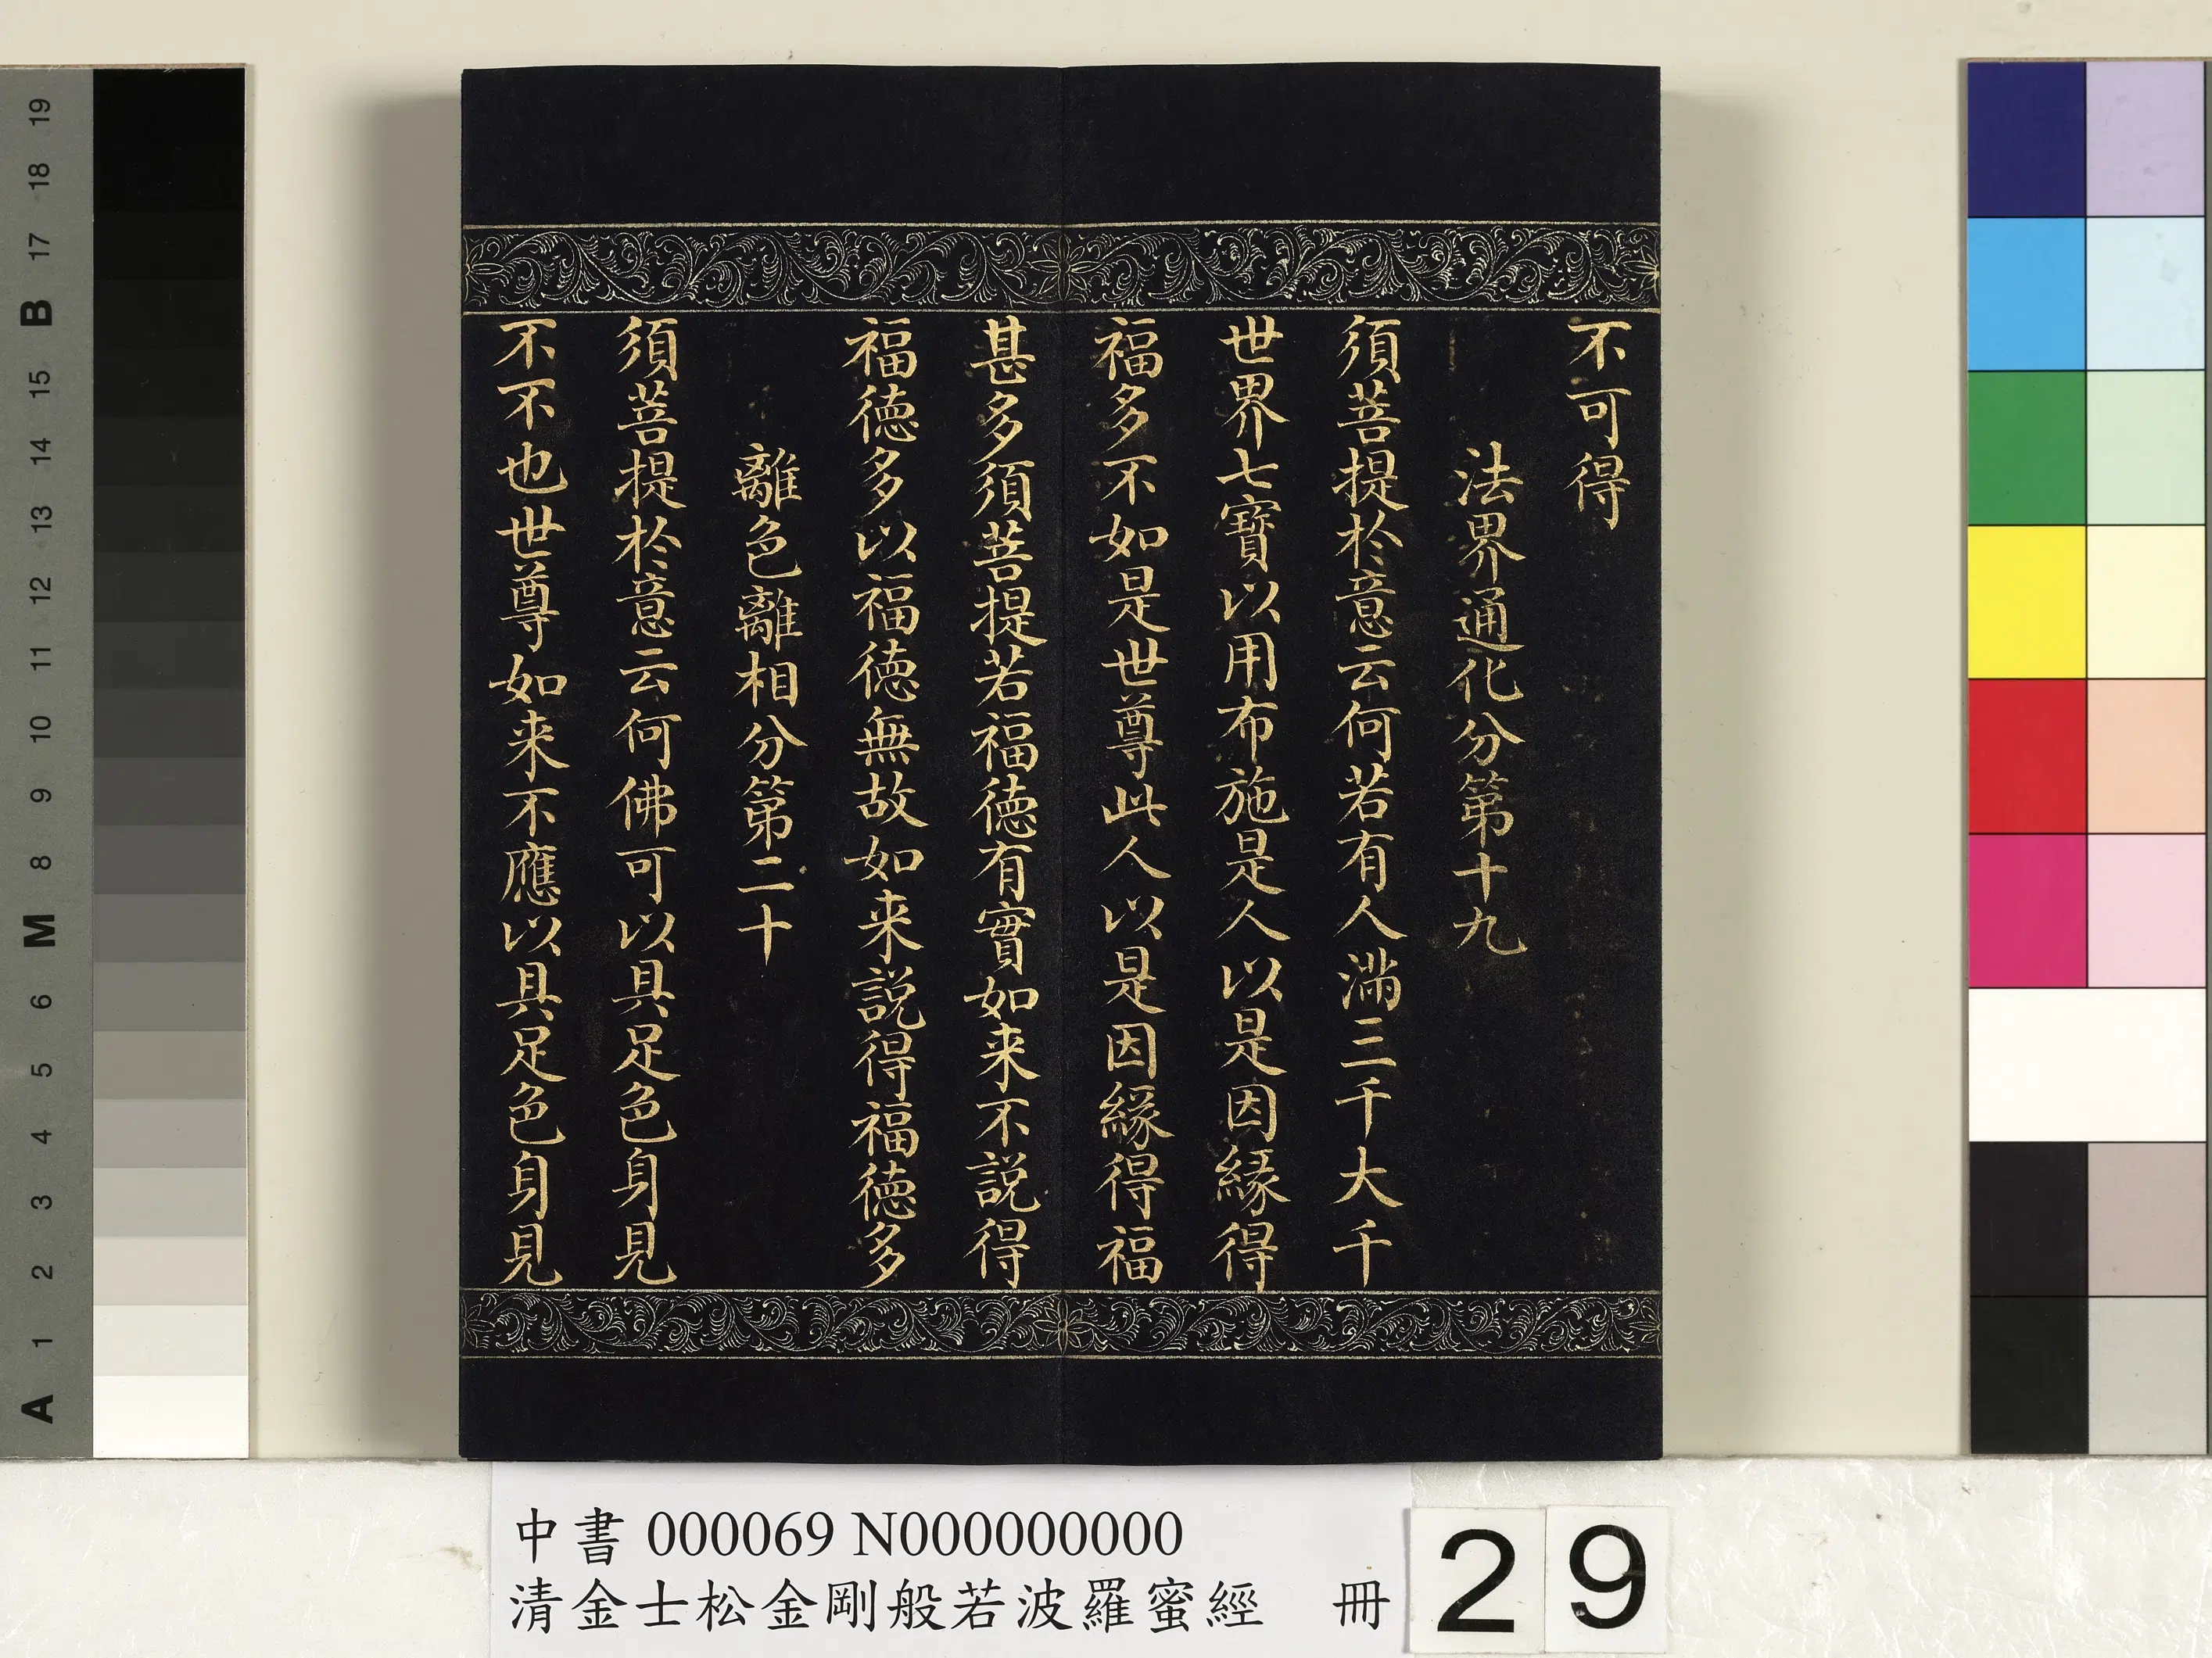 不可得
法界通化分第十九
須菩提於意云何若有人滿三千大千
世界七寶以用布施是人以是因緣得
福多不如是世尊此人以是因緣得福
甚多須菩提若福德有實如来不説得
福德多以福德無故如来説得福德多
離色離相分第二十
須菩提於意云何佛可以具足色身見
不不也世尊如来不應以具足色身見
中書 000069 N000000000
清金士松金剛般若波羅蜜經 冊
29
19
18
17
B
15
14
13
12
11
10
9
8
M
6
5
4
3
2
1
A